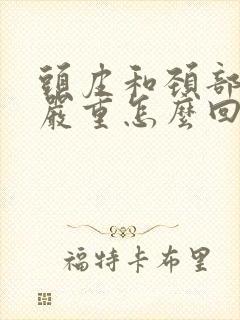 頭皮和頸部
嚴重怎麼回
福特卡布里